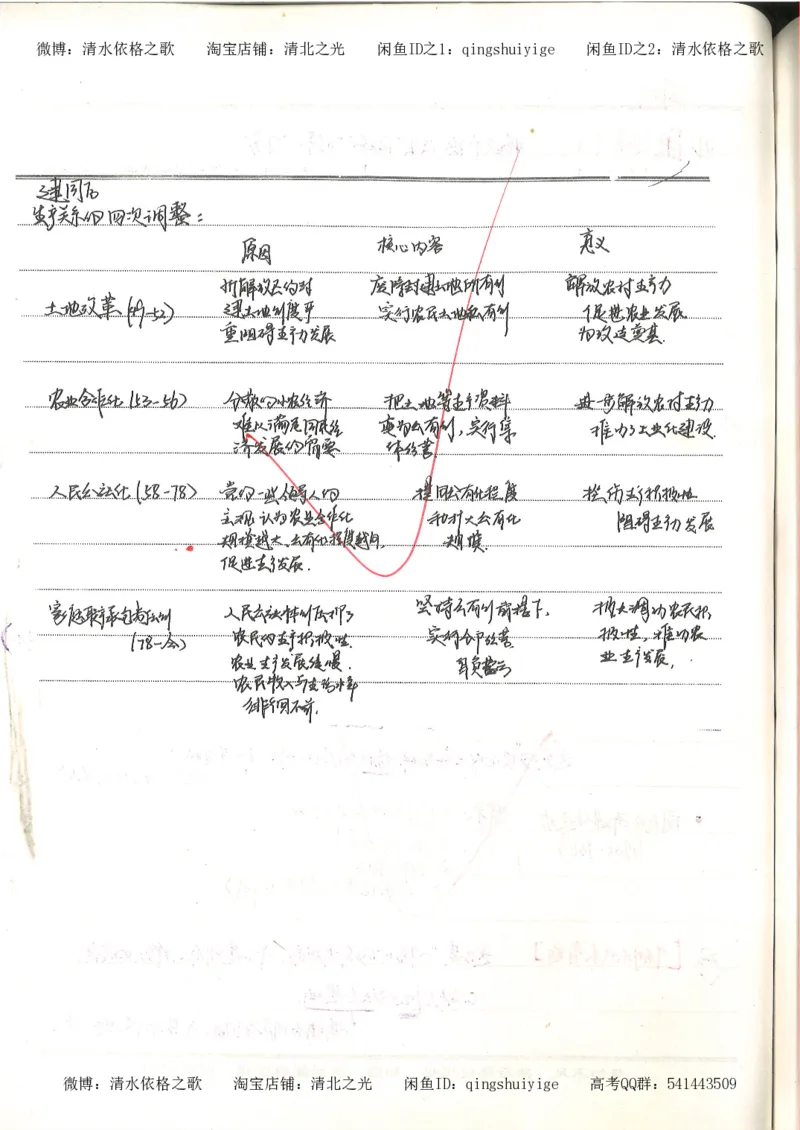 微博：清水依格之歌 淘宝店铺：清北之光 闲鱼ID之1：qingshuiyige 闲鱼ID之2：清水依格之歌
建国后
生产关系的四次调整：
原因 核心内容 意义
土地改革(49-52)
新解放区的封
建土地制度严
重阻碍生产力发展
废除封建土地所有制
实行农民土地私有制
解放农村生产力
促进农业发展
为改造奠基.
农业合作化(53-56)
分散的小农经济
难以满足国民经
济发展的需要
把土地等生产资料
变为公有制，实行集
体经营.
进一步解放农村生产力
推动工业化建设.
人民公社化(58-78)
党的一些领导人的
主观认为农业合作化
规模越大、公有化程度越高，
促进生产发展.
提高公有化程度
和扩大公有化
规模.
挫伤生产积极性
阻碍生产力发展
家庭联产承包责任制
(78-今)
人民公社体制压抑了
农民的生产积极性.
农业生产发展缓慢.
农民收入与生活水平
徘徊不前.
坚持公有制前提下，
实行分户经营
自负盈亏
极大调动农民积
极性，推动农
业生产发展，
微博：清水依格之歌 淘宝店铺：清北之光 闲鱼ID：qingshuiyige 高考QQ群：541443509